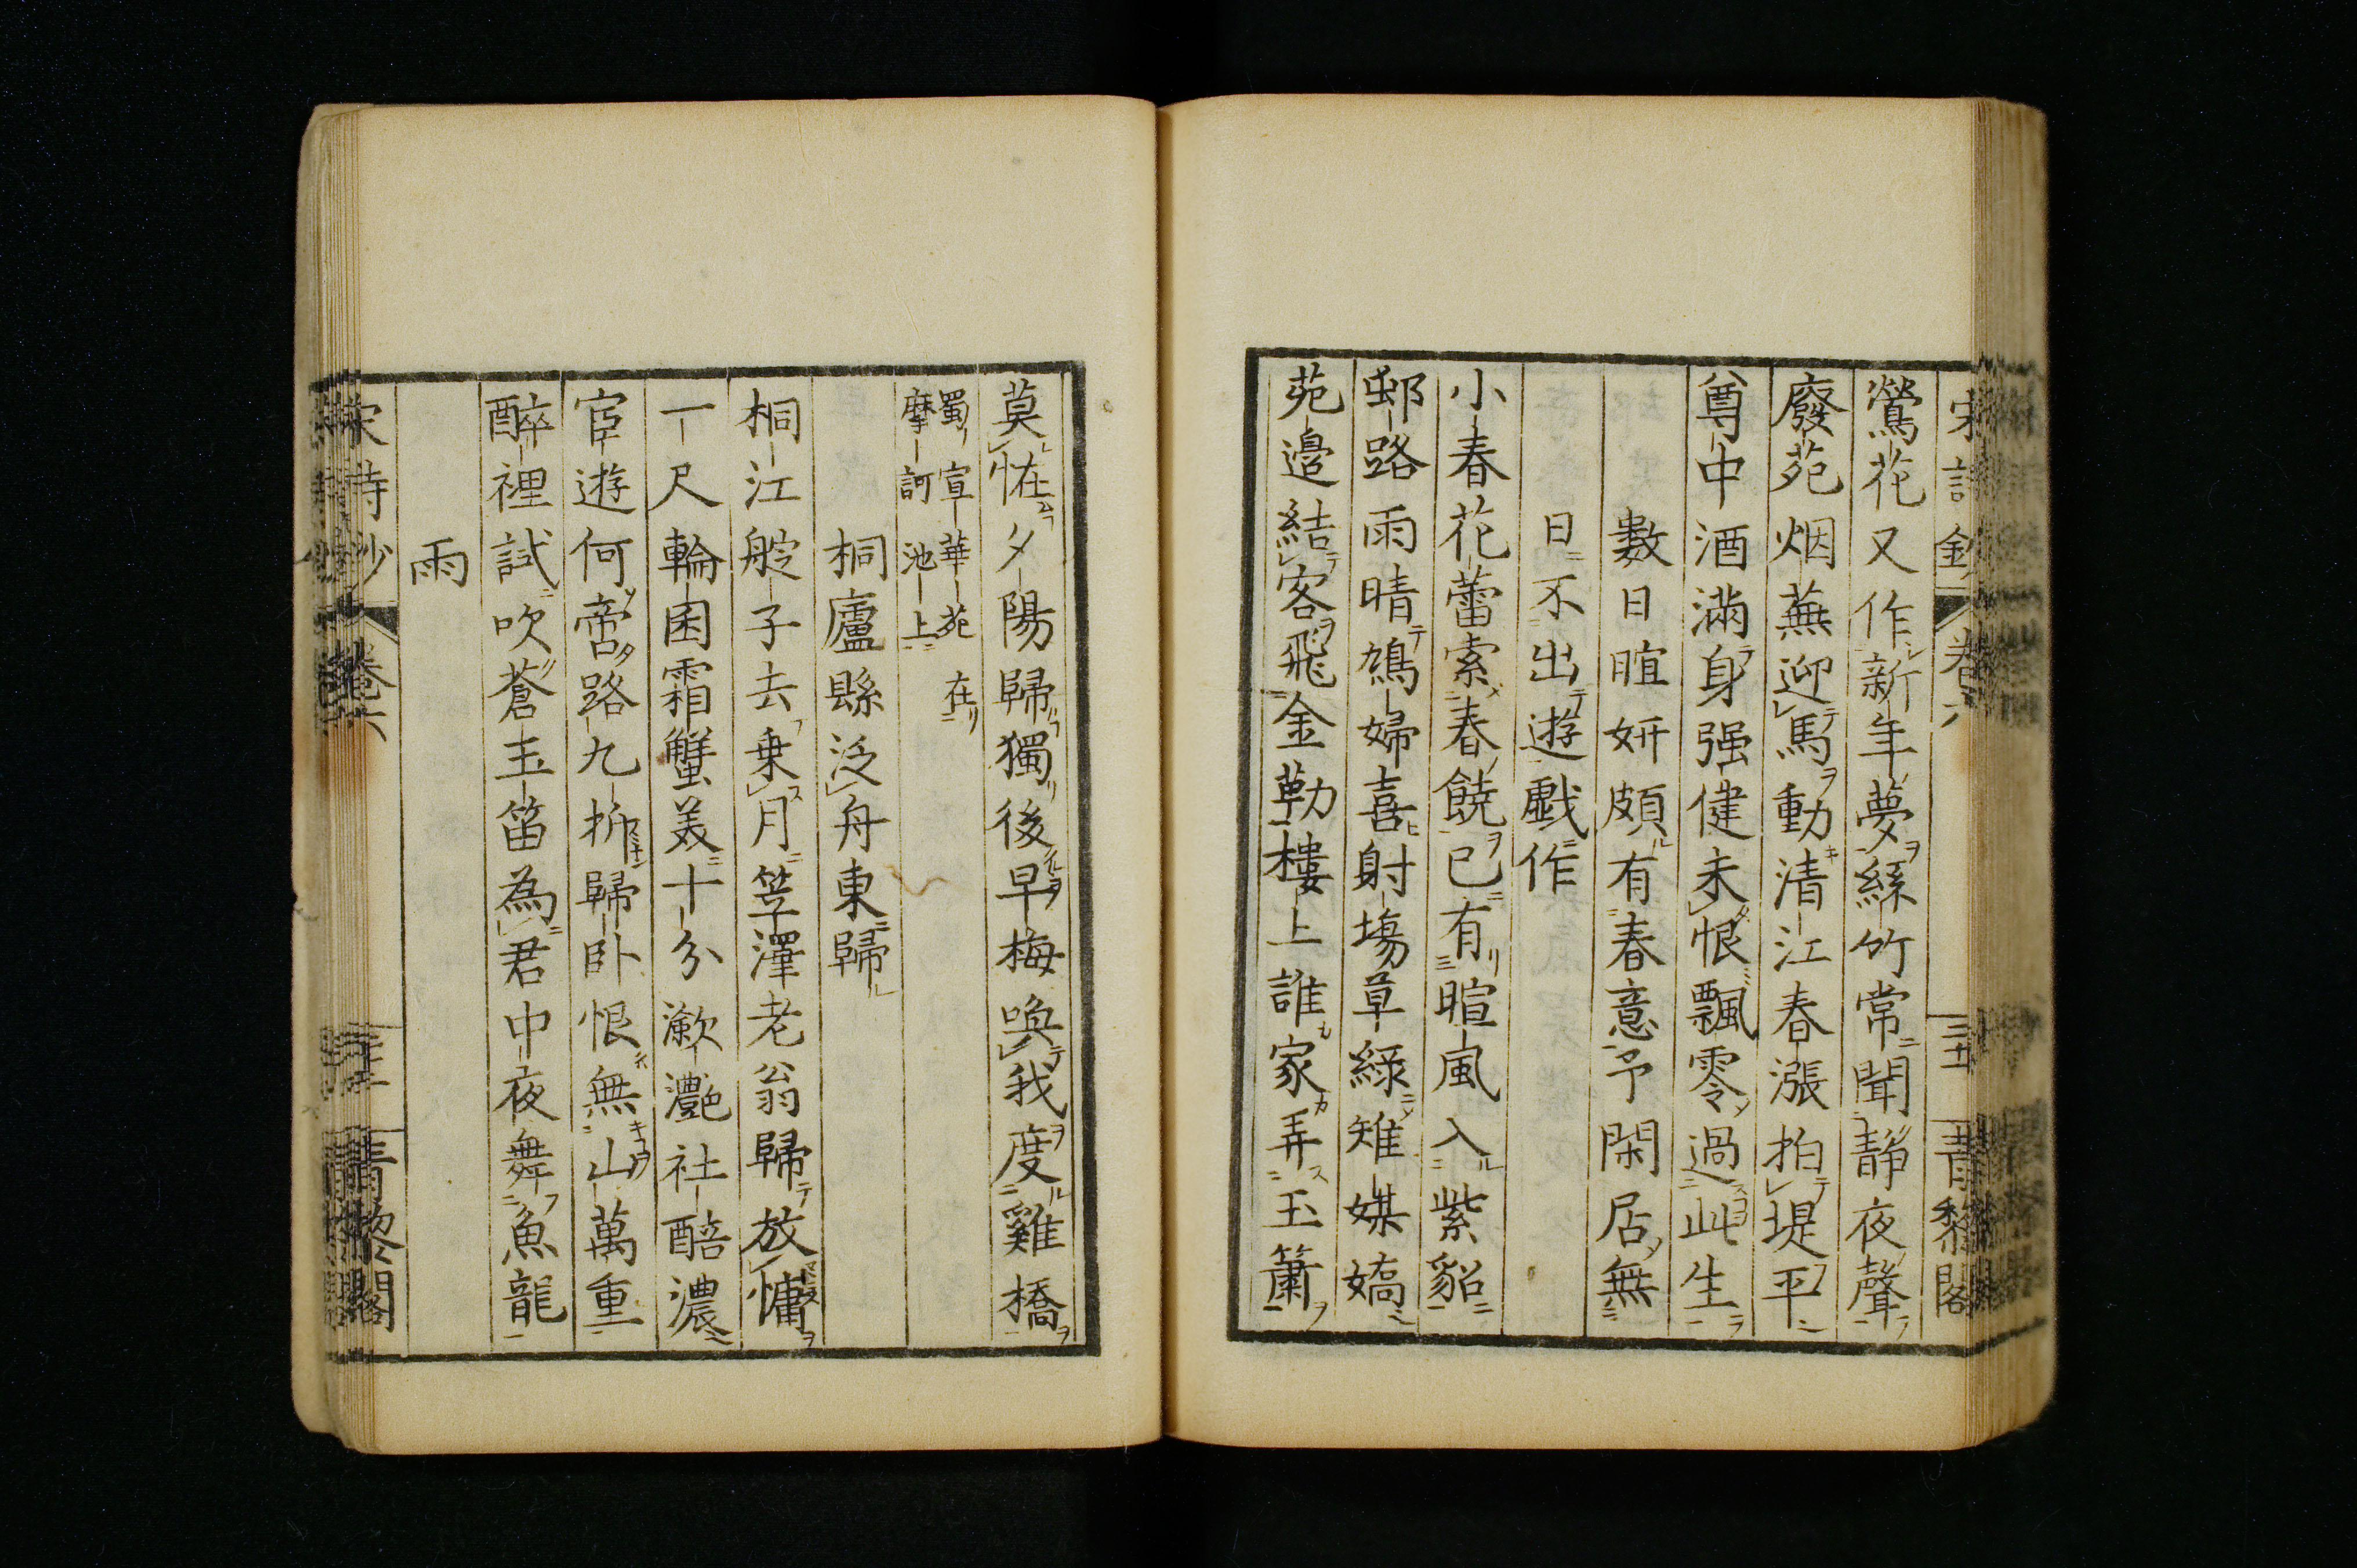 鶯花又作新年夢絲竹常聞靜夜聲
廢苑烟蕪迎馬動清江春漲拍堤平
尊中酒滿身强健未恨飄零過此生
數日暄妍頗有春意予閑居無
日不出遊戯作
小春花蕾索春饒已有暄風入紫貂
郵路雨晴鳩婦喜射塲草綠雉媒嬌
苑邊結客飛金勒樓上誰家弄玉簫
莫恠夕陽歸獨後早梅喚我度雞橋
蜀宣華苑在
摩訶池上
桐廬縣泛舟東歸
桐江艇子去乗月笠澤老翁歸放慵
一尺輪囷霜蟹美十分瀲灧社醅濃
宦遊何啻路九折歸卧恨無山萬重
醉裡試吹蒼玉笛為君中夜舞魚龍
雨
宋詩鈔 卷六 青黎閣